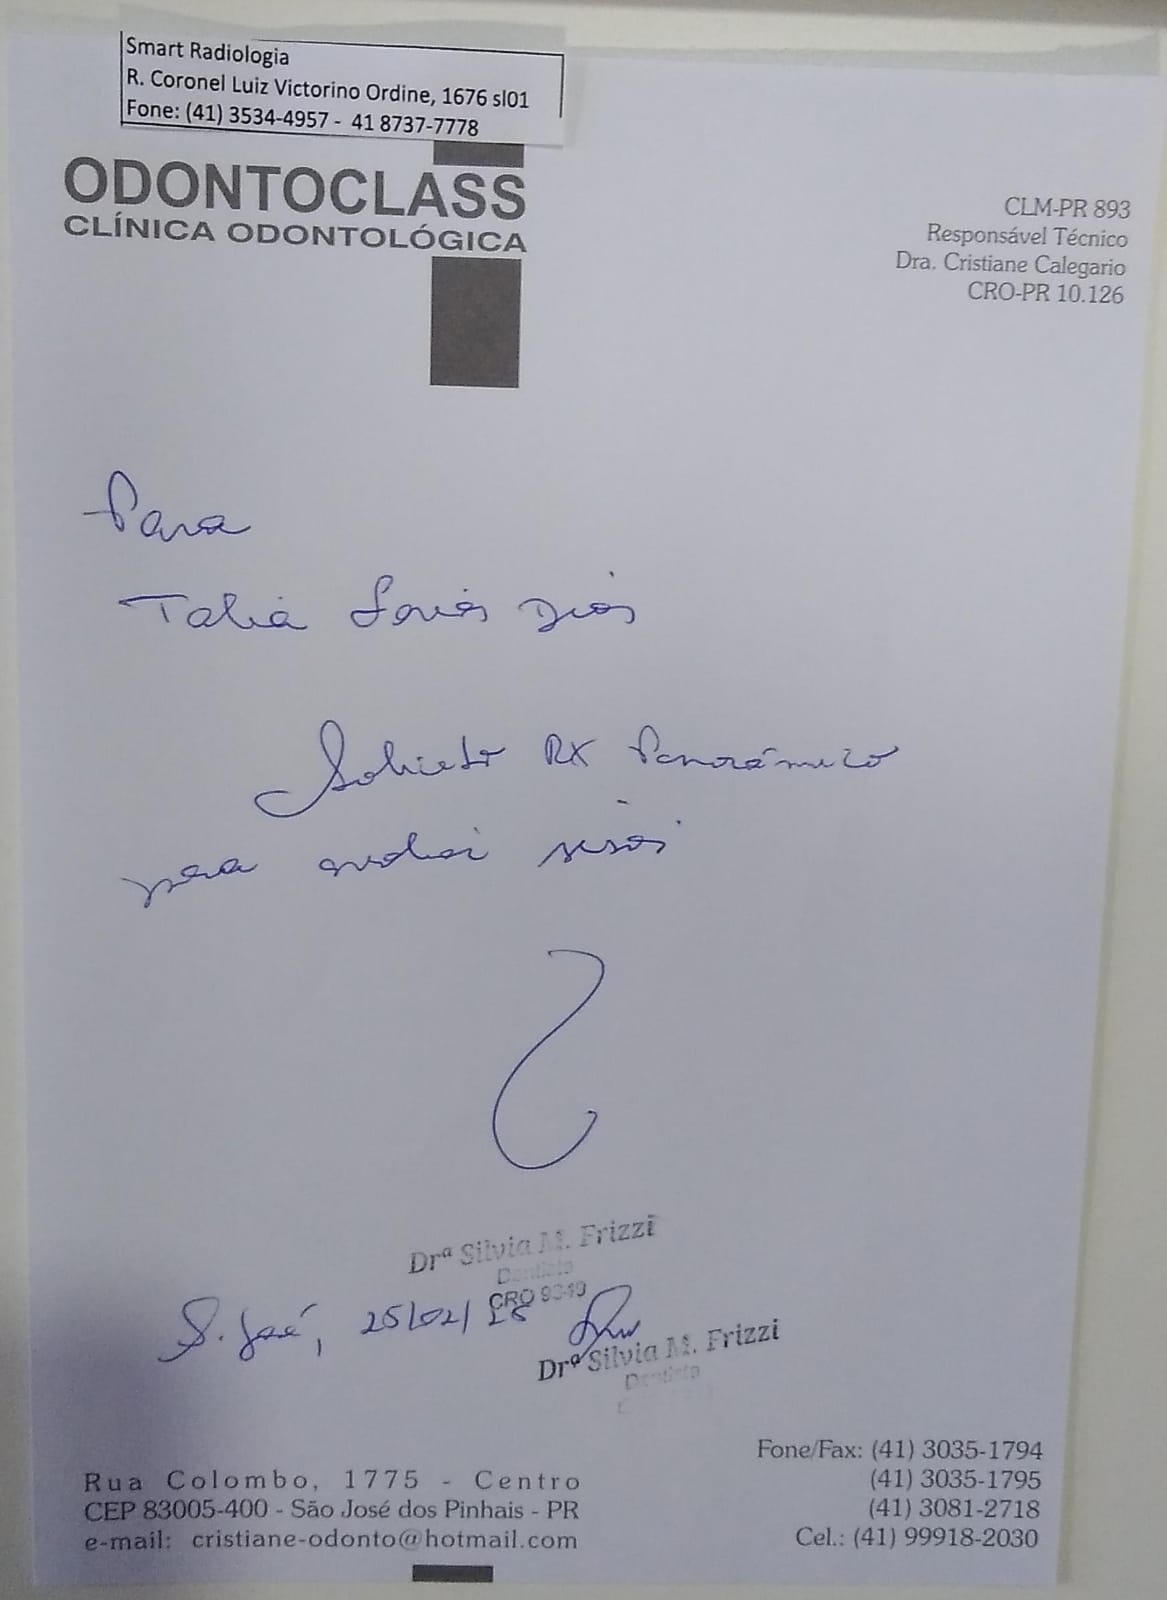 Smart Radiologia
R. Coronel Luiz Victorino Ordine, 1676 sl01
Fone: (41) 3534-4957 - 41 8737-7778
ODONTOCLASS
CLÍNICA ODONTOLÓGICA
CLM-PR 893
Responsável Técnico
Dra. Cristiane Calegario
CRO-PR 10.126
Para
Dias
Solicito RX Panorâmico
para avaliar sisos
Drª Silvia M. Frizzi
Dentista
CRO
S. José, 25/02/
Drª Silvia M. Frizzi
Dentista
Rua Colombo, 1775 - Centro
CEP 83005-400 - São José dos Pinhais - PR
e-mail: cristiane-odonto@hotmail.com
Fone/Fax: (41) 3035-1794
(41) 3035-1795
(41) 3081-2718
Cel.: (41) 99918-2030